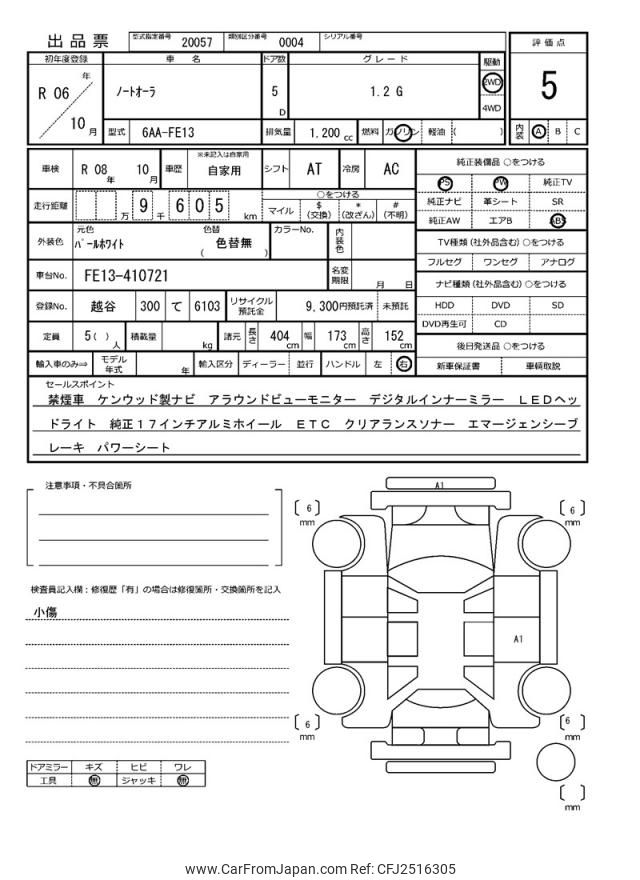 出品票
型式指定番号 20057 類別区分番号 0004 シリアル番号
評価点
初年度登録 車名 ドア数 グレード 駆動
R 06 年 10 月
ノートオーラ
5 D
1.2 G
2WD
4WD
5
型式 6AA-FE13 排気量 1,200 cc 燃料 ガソリン 軽油 ( )
内装 A B C
車検 R 08 年 10 月 車歴 ※未記入は自家用 自家用 シフト AT 冷房 AC
純正装備品 ○をつける
PS PW 純正TV
純正ナビ 革シート SR
純正AW エアB ABS
走行距離 万 9 千 6 0 5 km
○をつける
マイル $ (交換) * (改ざん) # (不明)
TV種類 (社外品含む) ○をつける
フルセグ ワンセグ アナログ
外装色 元色 パールホワイト 色替 ( 色替無 ) カラーNo. 内装色
車台No. FE13-410721 名変期限 月 日
ナビ種類 (社外品含む) ○をつける
HDD DVD SD
DVD再生可 CD
登録No. 越谷 300 て 6103 リサイクル預託金 9,300円預託済 未預託
定員 5 ( ) 人 積載量 kg 諸元 長さ 404 cm 幅 173 cm 高さ 152 cm
後日発送品 ○をつける
新車保証書 車輌取説
輸入車のみ⇒ モデル年式 年 輸入区分 ディーラー 並行 ハンドル 左 右
セールスポイント
禁煙車 ケンウッド製ナビ アラウンドビューモニター デジタルインナーミラー LEDヘッ
ドライト 純正17インチアルミホイール ETC クリアランスソナー エマージェンシーブ
レーキ パワーシート
注意事項・不具合箇所
検査員記入欄：修復歴「有」の場合は修復箇所・交換箇所を記入
小傷
A1
6 mm
6 mm
A1
6 mm
6 mm
mm
ドアミラー キズ ヒビ ワレ
工具 無 ジャッキ 無
www.CarFromJapan.com Ref: CFJ2516305